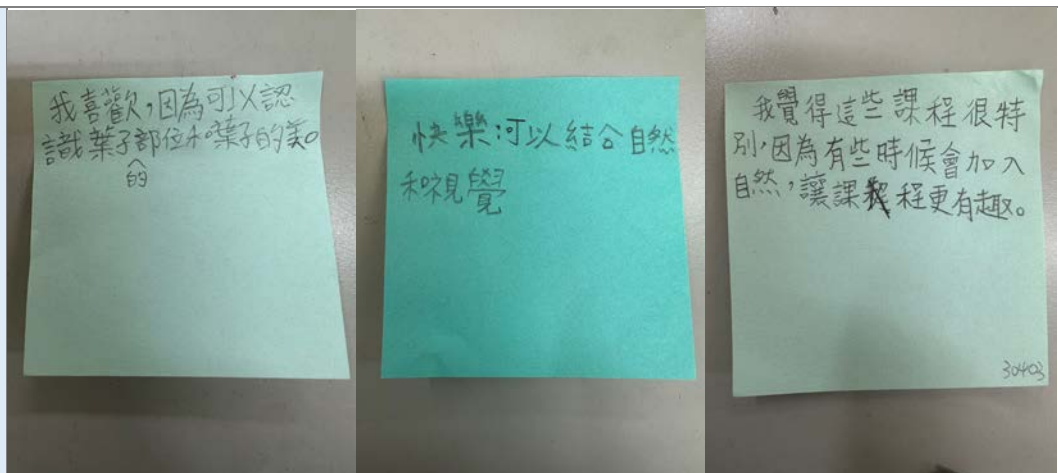 我喜歡，因為可以認
識葉子的部位和葉子的美。
快樂:可以結合自然
和視覺
我覺得這些課程很特
別，因為有些時候會加入
自然，讓課程更有趣。
30403